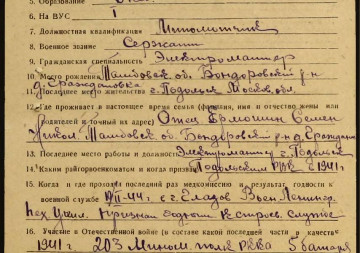 5. Образование
6. На ВУС I
7. Должностная квалификация Минометчик
8. Военное звание Сержант
9. Гражданская специальность Электромонтер
10. Место рождения Тамбовск. об. Бондоровский р-н
11. Последнее место жительства г. Подольск Моск. обл.
12. Где проживает в настоящее время семья (фамилия, имя и отчество жены или
родителей и точный их адрес) Отец Семен
Тамбовск. об. Бондоровский р-н д.
13. Последнее место работы и должность Электромонтер г. Подольск
14. Каким райгорвоенкоматом и когда призван Подольским РВК в 1941 г.
15. Когда и где проходил последний раз медкомиссию и результат, годность к
военной службе в г. Глазов Воен. Ленингр.
Пех. Учил. признан годным к строев. службе
16. Участие в Отечественной войне (в составе какой последней части в качестве
1941 г. 203 Мином. полк РККА 5 батарея